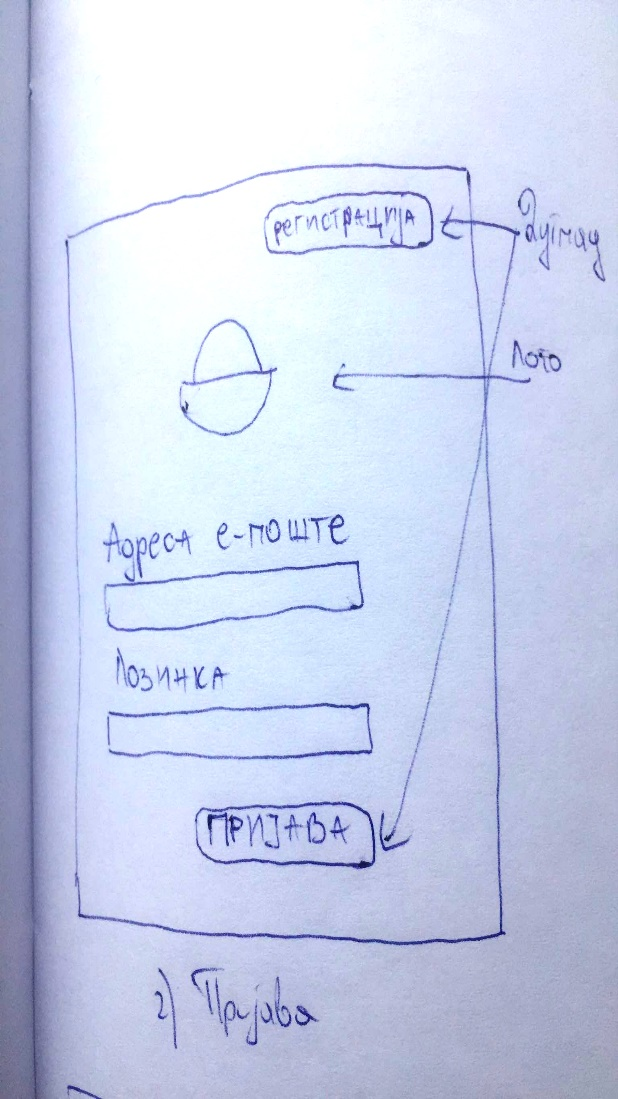 РЕГИСТРАЦИЈА
Дугмад
Лого
Адреса е-поште
Лозинка
ПРИЈАВА
2) Пријава